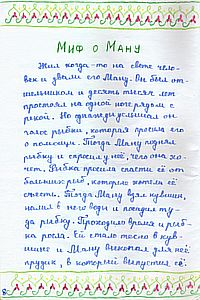 Миф о Ману
Жил когда-то на свете чело-
век и звали его Ману. Он был от-
шельником и десять тысяч лет
простоял на одной ноге рядом с
рекой. Но однажды услышал он
голос рыбки, которая просила его
о помощи. Тогда Ману поднял
рыбку и спросил у неё, чего она хо-
чет. Рыбка просила спасти её от
больших рыб, которые хотели её
съесть. Тогда Ману взял кувшин,
налил в него воды и посадил ту-
да рыбку. Проходило время и рыб-
ка росла. Ей стало тесно в кув-
шине и Ману выкопал для неё
прудик, в который выпустил её.